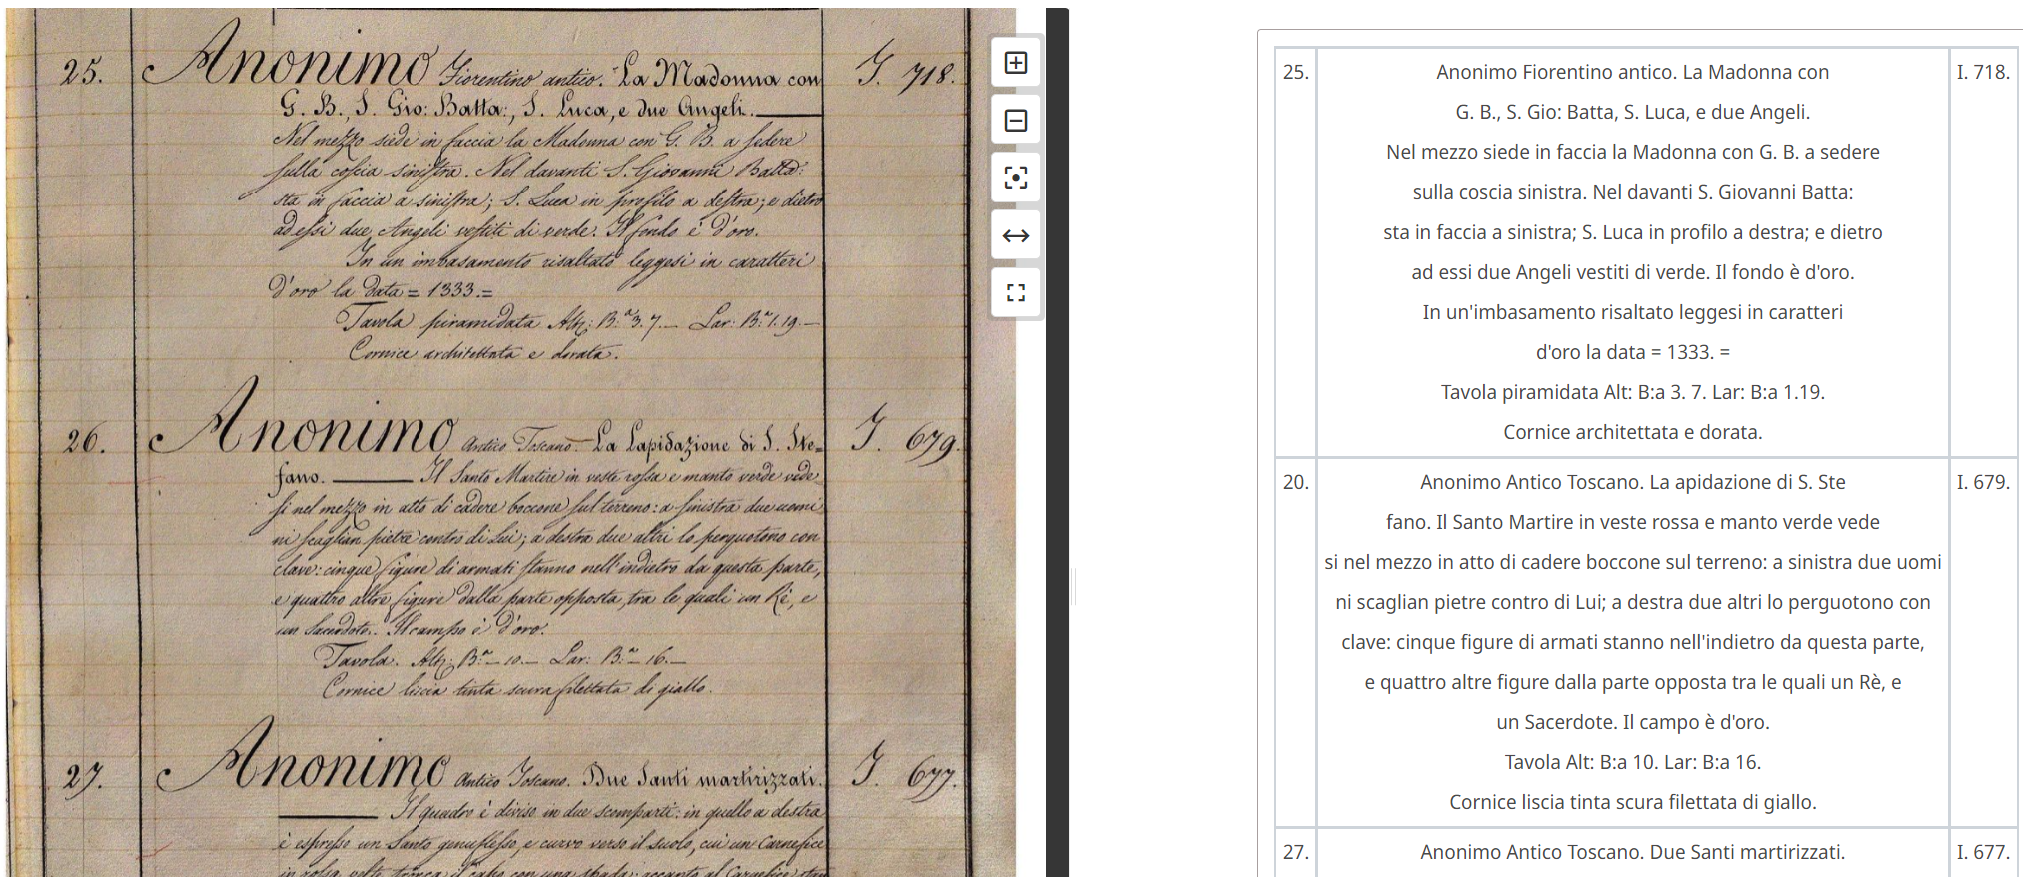 25. Anonimo Fiorentino antico. La Madonna con I. 718.
G. B., S. Gio: Batta:, S. Luca, e due Angeli.
Nel mezzo siede in faccia la Madonna con G. B. a sedere
sulla coscia sinistra. Nel davanti S. Giovanni Batta:
sta in faccia a sinistra; S. Luca in profilo a destra; e dietro
ad essi due Angeli vestiti di verde. Il fondo è d'oro.
In un imbasamento risaltato leggesi in caratteri
d'oro la data = 1333. =
Tavola piramidata Alt: B.a 3. 7. — Lar: B.a 1. 19. —
Cornice architettata e dorata.
26. Anonimo Antico Toscano. La Lapidazione di S. Ste= I. 679.
fano. — Il Santo Martire in veste rossa e manto verde vede
si nel mezzo in atto di cadere boccone sul terreno: a sinistra due uomi
ni scaglian pietre contro di Lui; a destra due altri lo perquotono con
clave: cinque figure di armati stanno nell'indietro da questa parte,
e quattro altre figure dalla parte opposta, tra le quali un Rè, e
un Sacerdote. Il campo è d'oro.
Tavola. Alt: B.a — 10. — Lar: B.a — 16. —
Cornice liscia tinta scura filettata di giallo.
27. Anonimo Antico Toscano. Due Santi martirizzati. I. 677.
Il quadro è diviso in due scomparti: in quello a destra
è espresso un Santo genuflesso, e curvo verso il suolo, cui un Carnefice
in rossa veste tronca il capo con una spada: accanto al Carnefice stan
25. Anonimo Fiorentino antico. La Madonna con I. 718.
G. B., S. Gio: Batta, S. Luca, e due Angeli.
Nel mezzo siede in faccia la Madonna con G. B. a sedere
sulla coscia sinistra. Nel davanti S. Giovanni Batta:
sta in faccia a sinistra; S. Luca in profilo a destra; e dietro
ad essi due Angeli vestiti di verde. Il fondo è d'oro.
In un'imbasamento risaltato leggesi in caratteri
d'oro la data = 1333. =
Tavola piramidata Alt: B:a 3. 7. Lar: B:a 1.19.
Cornice architettata e dorata.
20. Anonimo Antico Toscano. La apidazione di S. Ste I. 679.
fano. Il Santo Martire in veste rossa e manto verde vede
si nel mezzo in atto di cadere boccone sul terreno: a sinistra due uomi
ni scaglian pietre contro di Lui; a destra due altri lo perguotono con
clave: cinque figure di armati stanno nell'indietro da questa parte,
e quattro altre figure dalla parte opposta tra le quali un Rè, e
un Sacerdote. Il campo è d'oro.
Tavola Alt: B:a 10. Lar: B:a 16.
Cornice liscia tinta scura filettata di giallo.
27. Anonimo Antico Toscano. Due Santi martirizzati. I. 677.